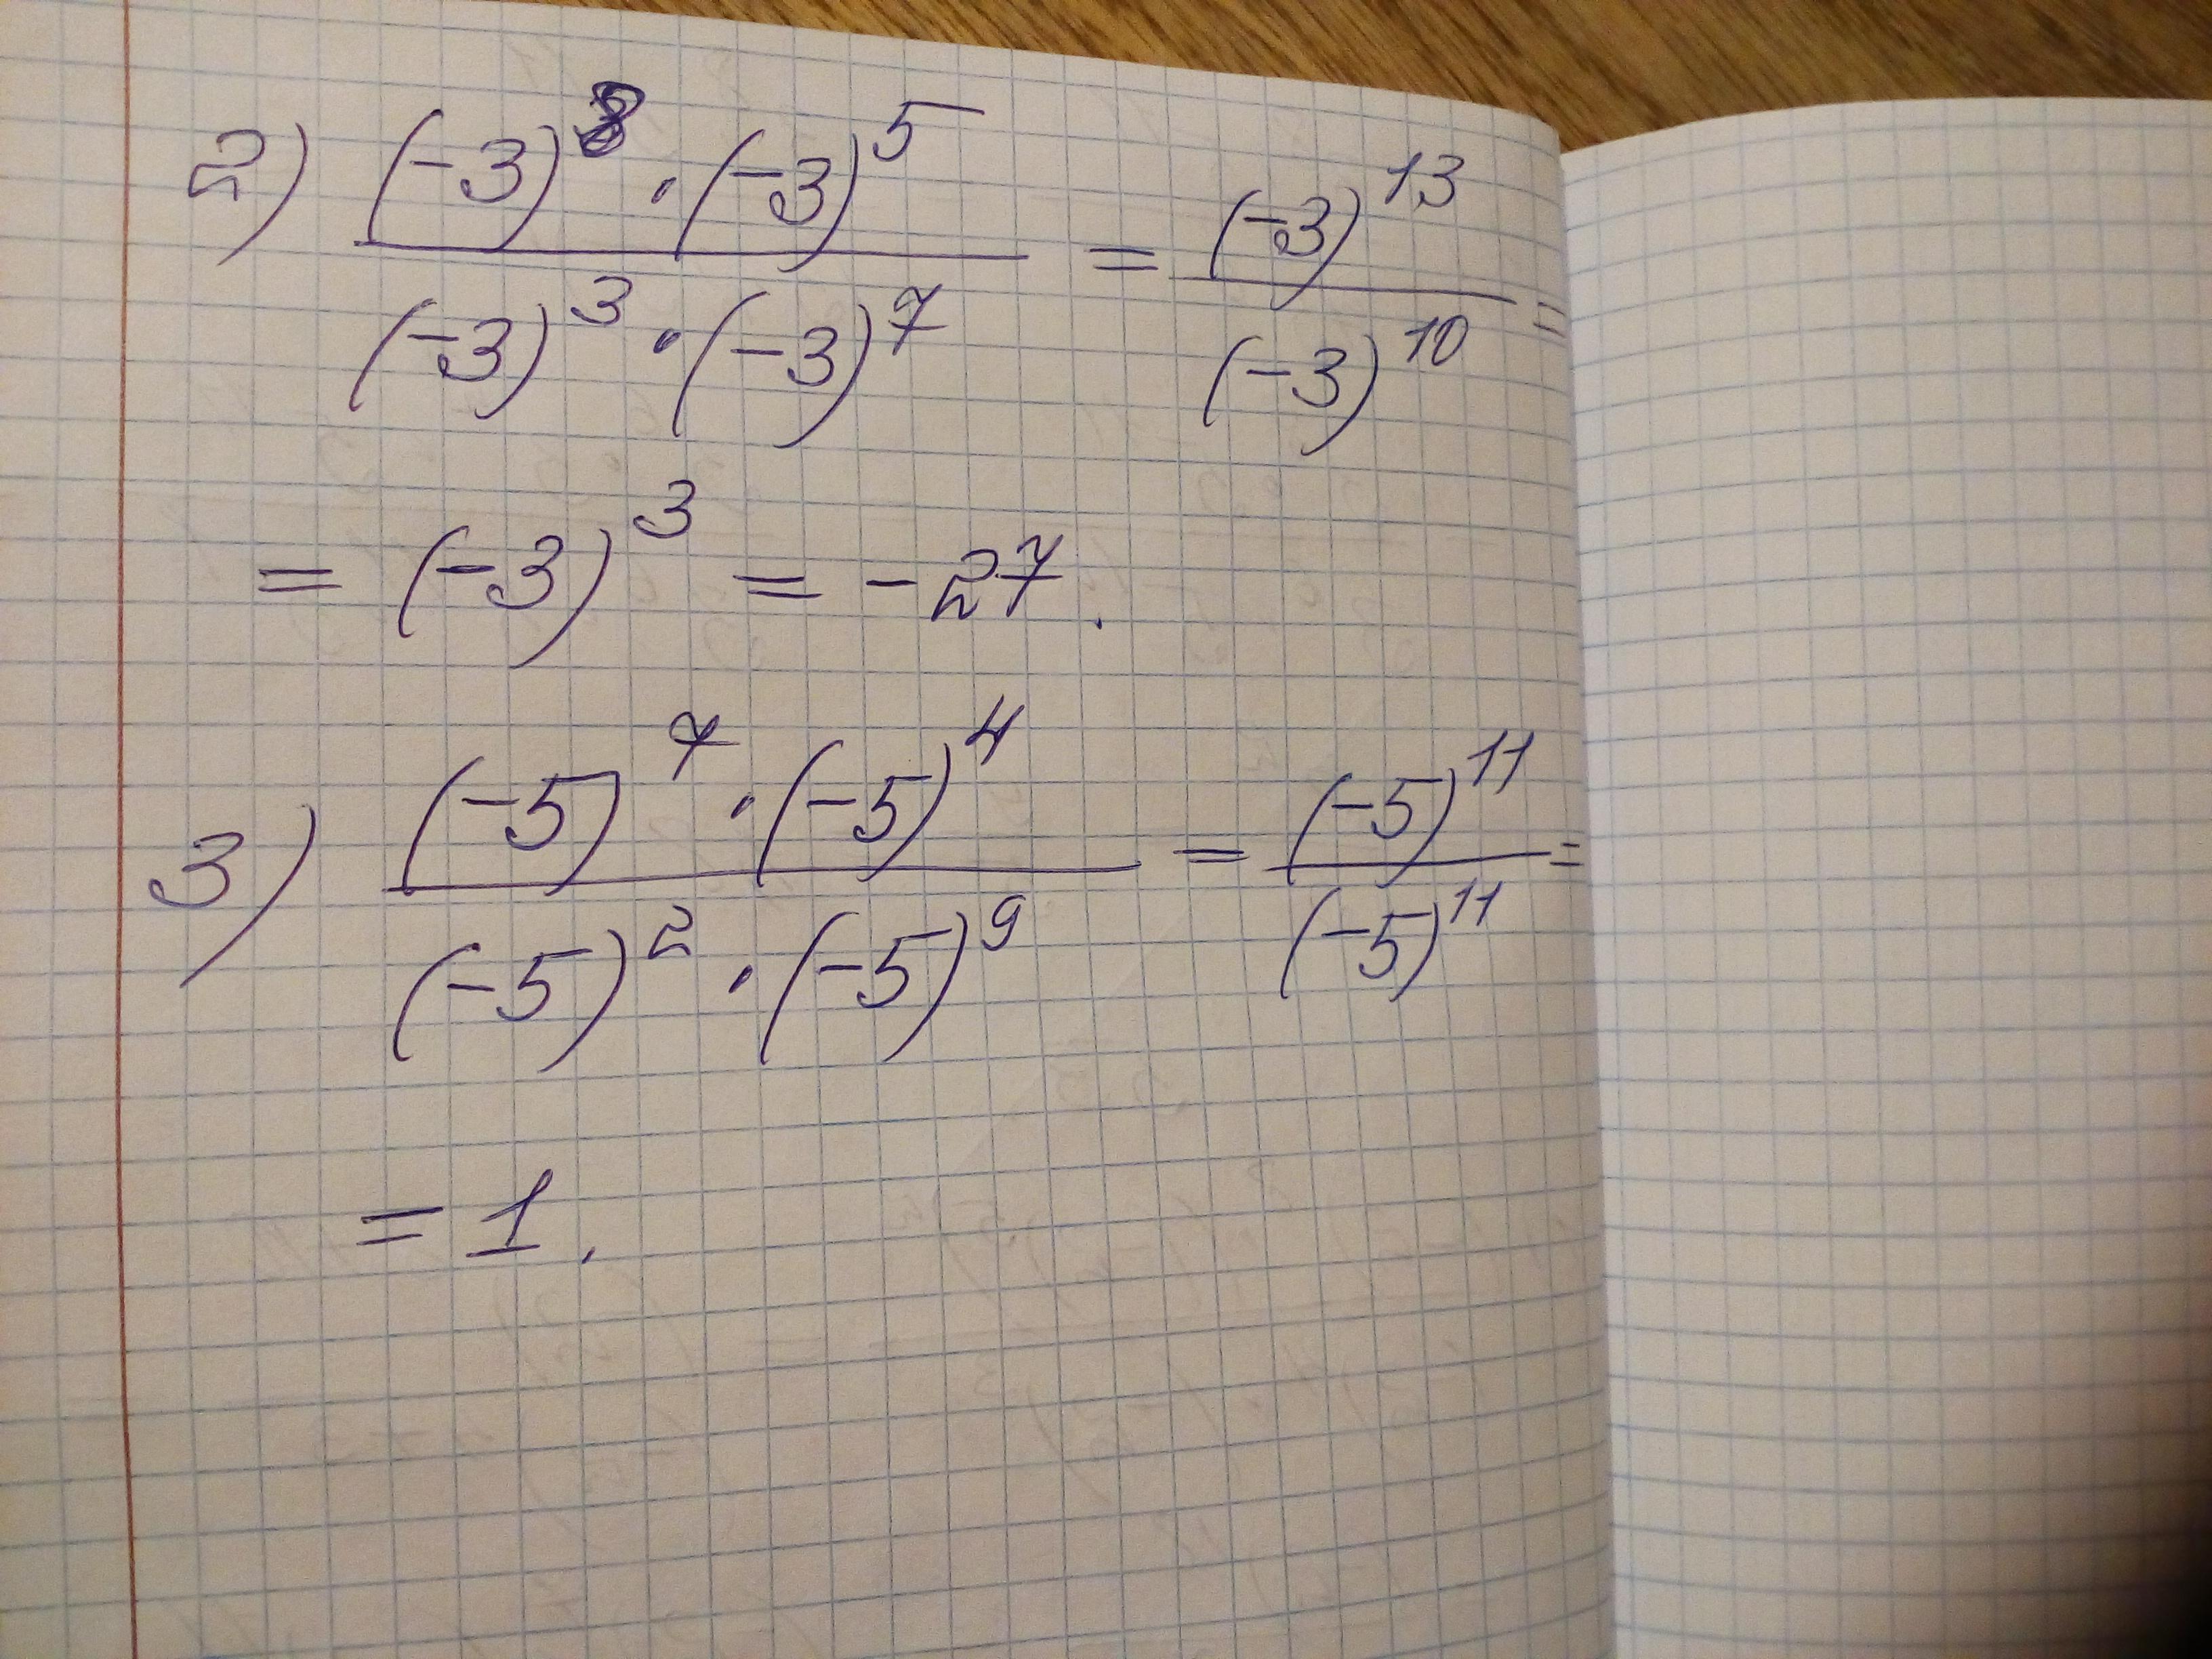 2) \frac{(-3)^8 \cdot (-3)^5}{(-3)^3 \cdot (-3)^7} = \frac{(-3)^{13}}{(-3)^{10}} =
= (-3)^3 = -27.
3) \frac{(-5)^7 \cdot (-5)^4}{(-5)^2 \cdot (-5)^9} = \frac{(-5)^{11}}{(-5)^{11}} =
= 1.